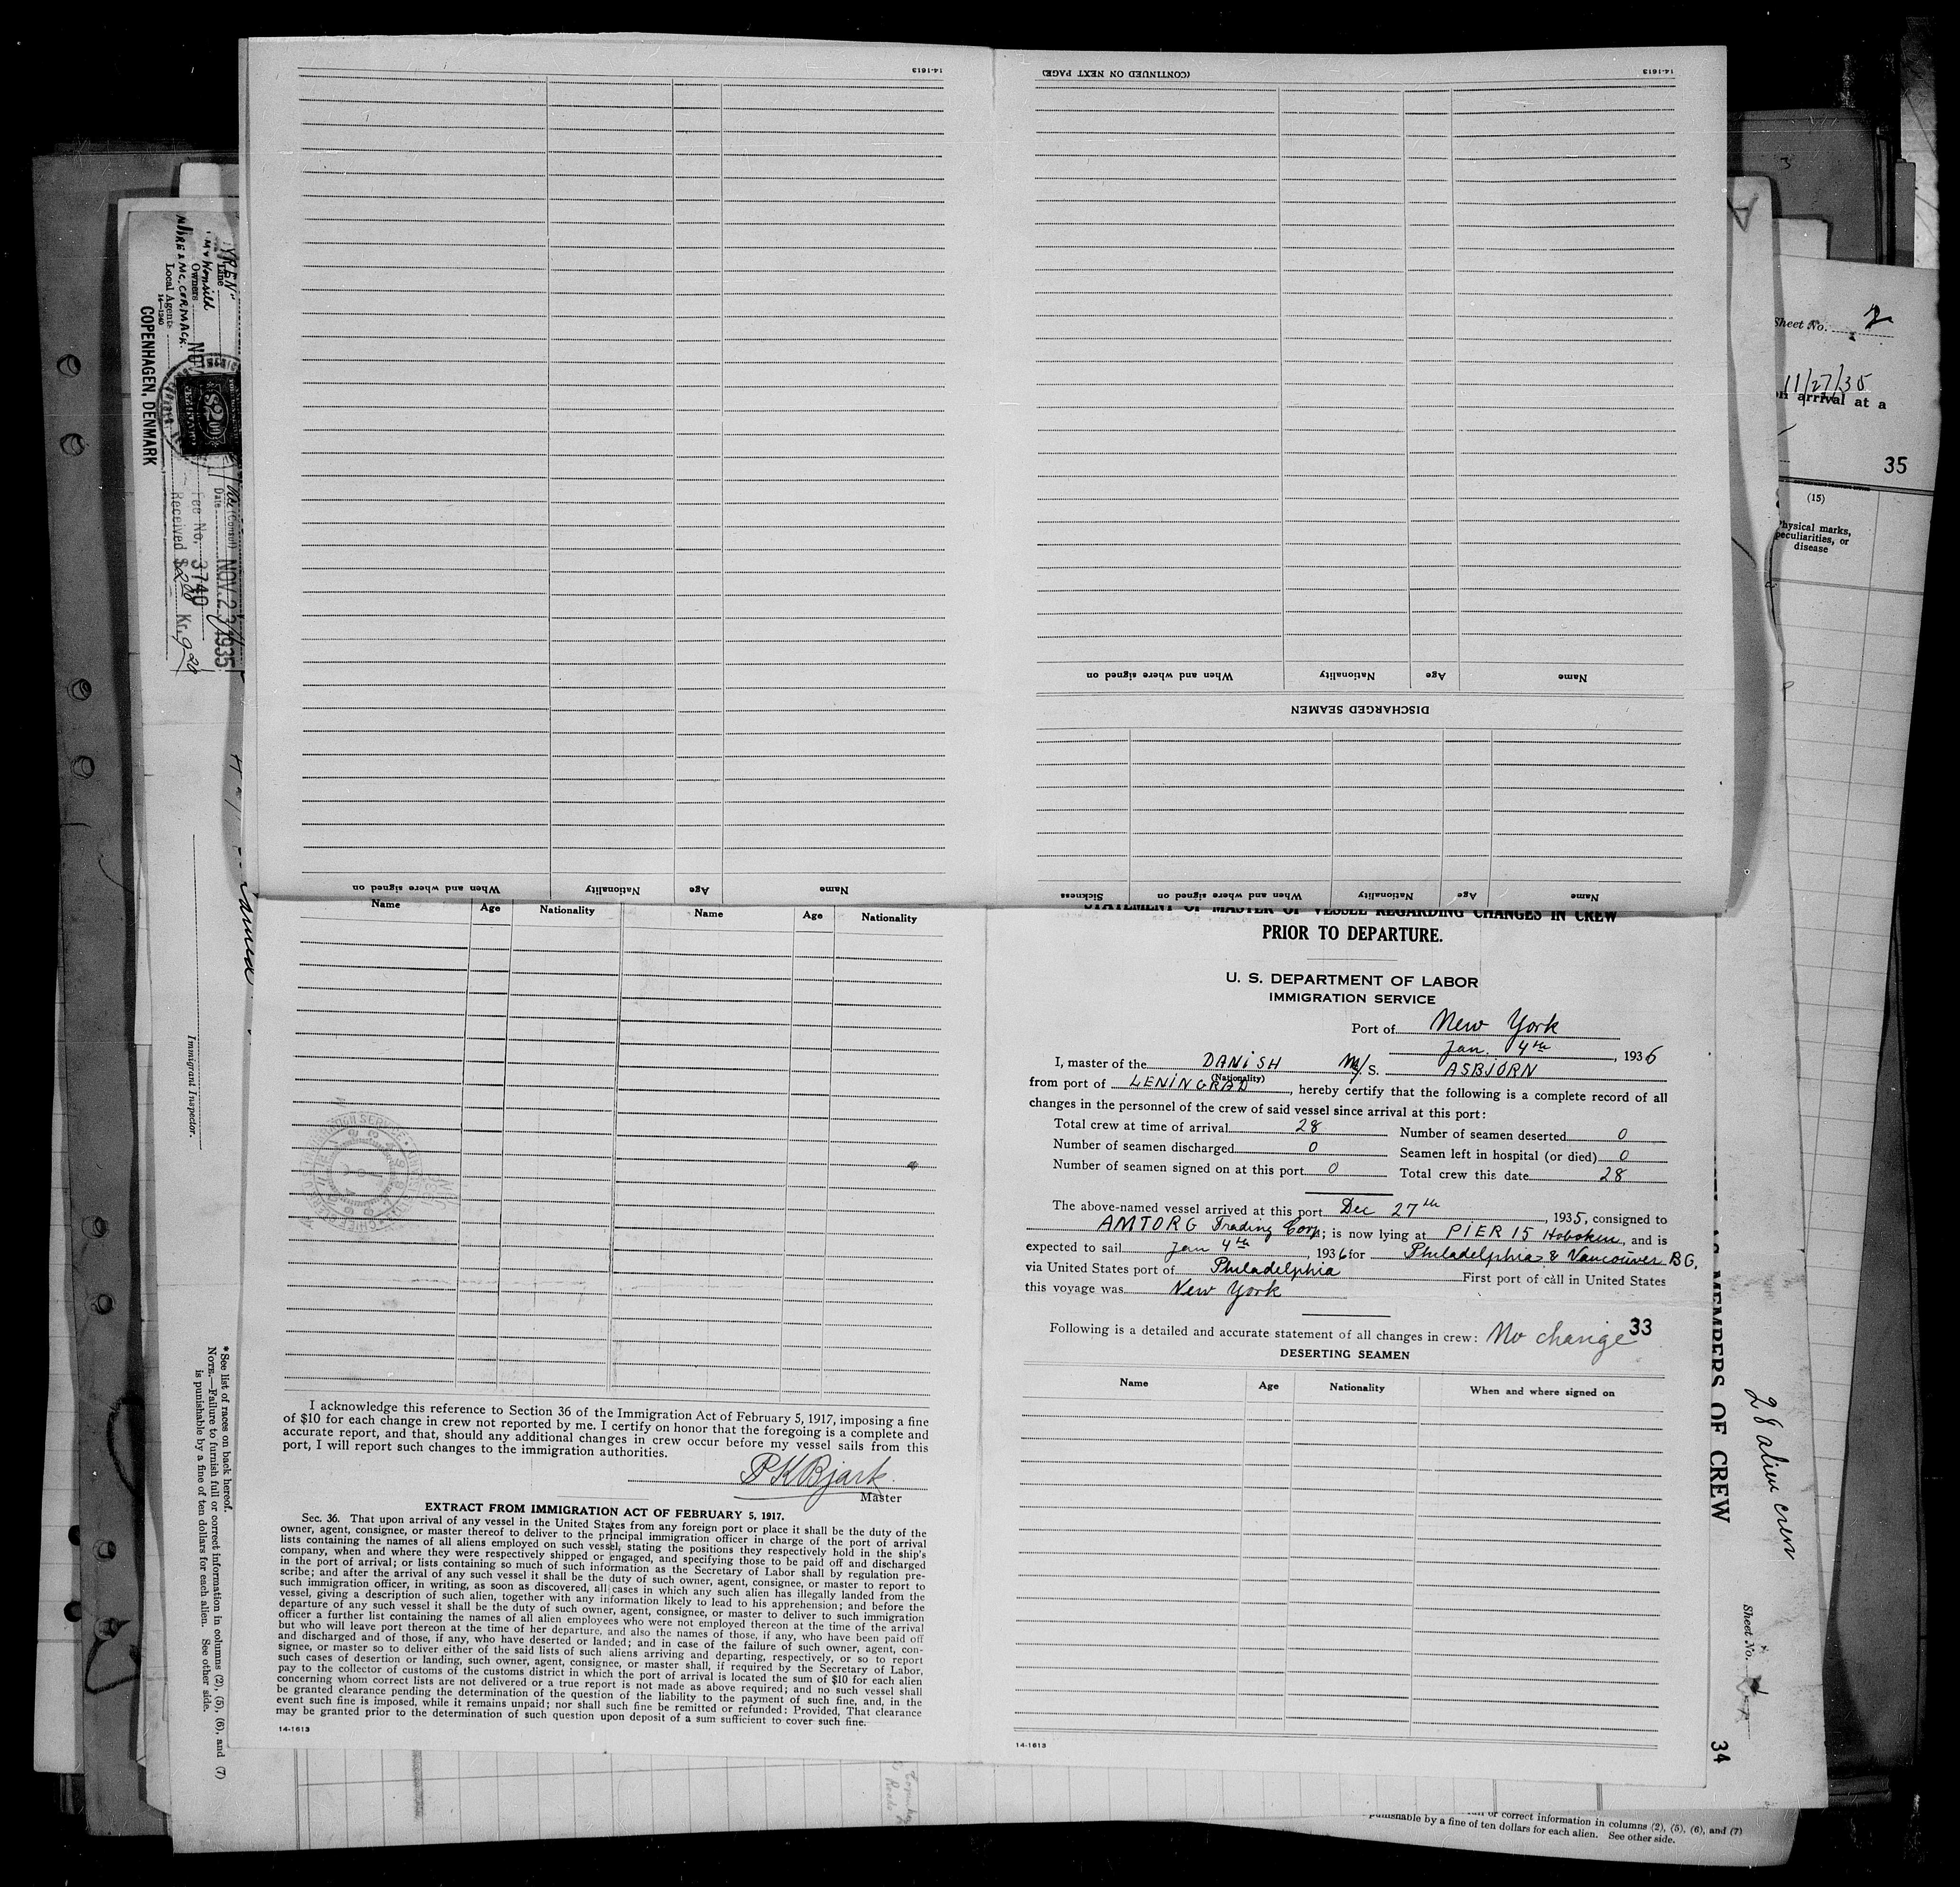 14-1613
(CONTINUED ON NEXT PAGE)
14-1613
When and where signed on
Nationality
Age
Name
DISCHARGED SEAMEN
Sickness
When and where signed on
Nationality
Age
Name
When and where signed on
Nationality
Age
Name
Name
Age
Nationality
Name
Age
Nationality
I acknowledge this reference to Section 36 of the Immigration Act of February 5, 1917, imposing a fine
of $10 for each change in crew not reported by me. I certify on honor that the foregoing is a complete and
accurate report, and that, should any additional changes in crew occur before my vessel sails from this
port, I will report such changes to the immigration authorities.
P K Bjark
Master
EXTRACT FROM IMMIGRATION ACT OF FEBRUARY 5, 1917.
Sec. 36. That upon arrival of any vessel in the United States from any foreign port or place it shall be the duty of the
owner, agent, consignee, or master thereof to deliver to the principal immigration officer in charge of the port of arrival
lists containing the names of all aliens employed on such vessel, stating the positions they respectively hold in the ship's
company, when and where they were respectively shipped or engaged, and specifying those to be paid off and discharged
in the port of arrival; or lists containing so much of such information as the Secretary of Labor shall by regulation pre-
scribe; and after the arrival of any such vessel it shall be the duty of such owner, agent, consignee, or master to report to
such immigration officer, in writing, as soon as discovered, all cases in which any such alien has illegally landed from the
vessel, giving a description of such alien, together with any information likely to lead to his apprehension; and before the
departure of any such vessel it shall be the duty of such owner, agent, consignee, or master to deliver to such immigration
officer a further list containing the names of all alien employees who were not employed thereon at the time of the arrival
but who will leave port thereon at the time of her departure, and also the names of those, if any, who have been paid off
and discharged and of those, if any, who have deserted or landed; and in case of the failure of such owner, agent, con-
signee, or master so to deliver either of the said lists of such aliens arriving and departing, respectively, or so to report
such cases of desertion or landing, such owner, agent, consignee, or master shall, if required by the Secretary of Labor,
pay to the collector of customs of the customs district in which the port of arrival is located the sum of $10 for each alien
concerning whom correct lists are not delivered or a true report is not made as above required; and no such vessel shall
be granted clearance pending the determination of the question of the liability to the payment of such fine, and, in the
event such fine is imposed, while it remains unpaid; nor shall such fine be remitted or refunded: Provided, That clearance
may be granted prior to the determination of such question upon deposit of a sum sufficient to cover such fine.
14-1613
STATEMENT OF MASTER OF VESSEL REGARDING CHANGES IN CREW
PRIOR TO DEPARTURE.
U. S. DEPARTMENT OF LABOR
IMMIGRATION SERVICE
Port of New York
Jan. 4th, 1936
I, master of the DANISH M/S. ASBJORN
(Nationality)
from port of LENINGRAD, hereby certify that the following is a complete record of all
changes in the personnel of the crew of said vessel since arrival at this port:
Total crew at time of arrival 28
Number of seamen deserted 0
Number of seamen discharged 0
Seamen left in hospital (or died) 0
Number of seamen signed on at this port 0
Total crew this date 28
The above-named vessel arrived at this port Dec 27th, 1935, consigned to
AMTORG Trading Corp; is now lying at PIER 15 Hoboken, and is
expected to sail Jan 4th, 1936 for Philadelphia & Vancouver BC,
via United States port of Philadelphia First port of call in United States
this voyage was New York
33
Following is a detailed and accurate statement of all changes in crew: No change
DESERTING SEAMEN
Name
Age
Nationality
When and where signed on
14-1613
Owners
Local Agents
14-1240
COPENHAGEN, DENMARK
Date NOV. 23 1935
Fee No. 3740
Received $2.00 Kr. 9.20
Immigrant Inspector.
* See list of races on back hereof.
NOTE.—Failure to furnish full or correct information in columns (2), (5), (6), and (7)
is punishable by a fine of ten dollars for each alien. See other side.
Sheet No. 2
11/27/35
on arrival at a
35
(15)
Physical marks,
peculiarities, or
disease
AS MEMBERS OF CREW
28 alien crew
Sheet No.
34
or correct information in columns (2), (5), (6), and (7)
punishable by a fine of ten dollars for each alien. See other side.